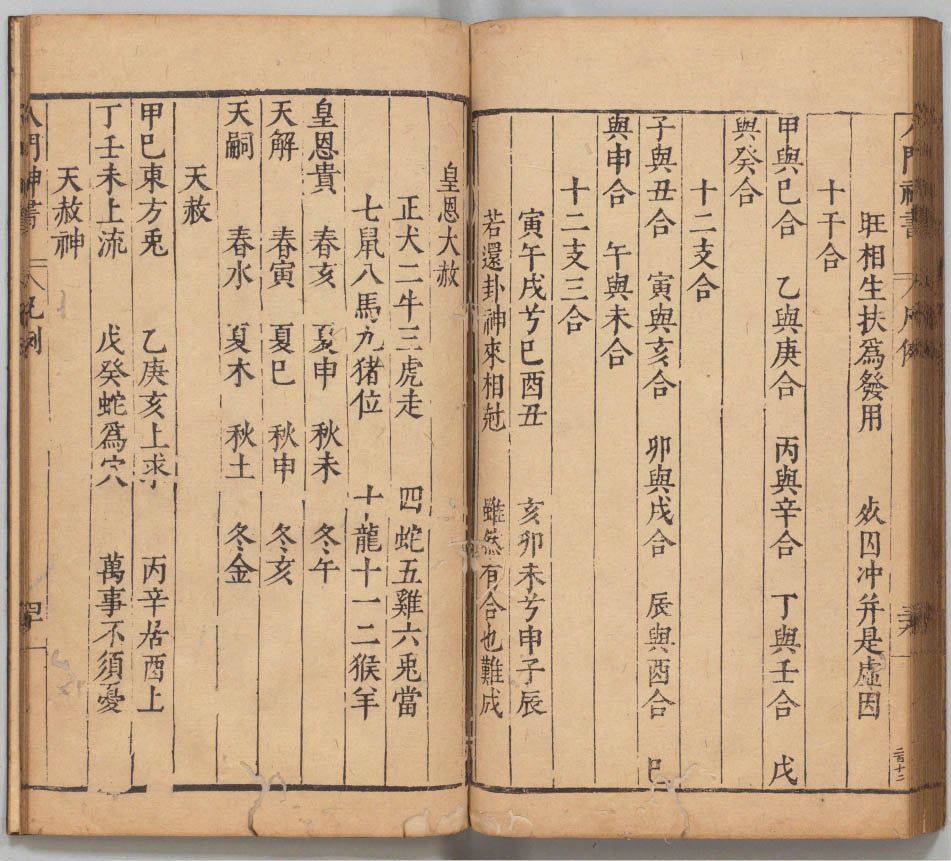 八門神書 凡例
旺相生扶爲發用 囚冲并是虛因
十干合
甲與巳合 乙與庚合 丙與辛合 丁與壬合 戊
與癸合
十二支合
子與丑合 寅與亥合 卯與戌合 辰與酉合 巳
與申合 午與未合
十二支三合
寅午戌兮巳酉丑 亥卯未兮申子辰
若還卦神來相尅 雖然有合也難成
皇恩大赦
正犬二牛三虎走 四蛇五雞六兎當
七鼠八馬九猪位 十龍十一二猴羊
皇恩貴 春亥 夏申 秋未 冬午
天解 春寅 夏巳 秋申 冬亥
天嗣 春水 夏木 秋土 冬金
天赦
甲巳東方兎 乙庚亥上求 丙辛居酉上
丁壬未上流 戊癸蛇爲穴 萬事不須憂
天赦神
八門神書 凡例